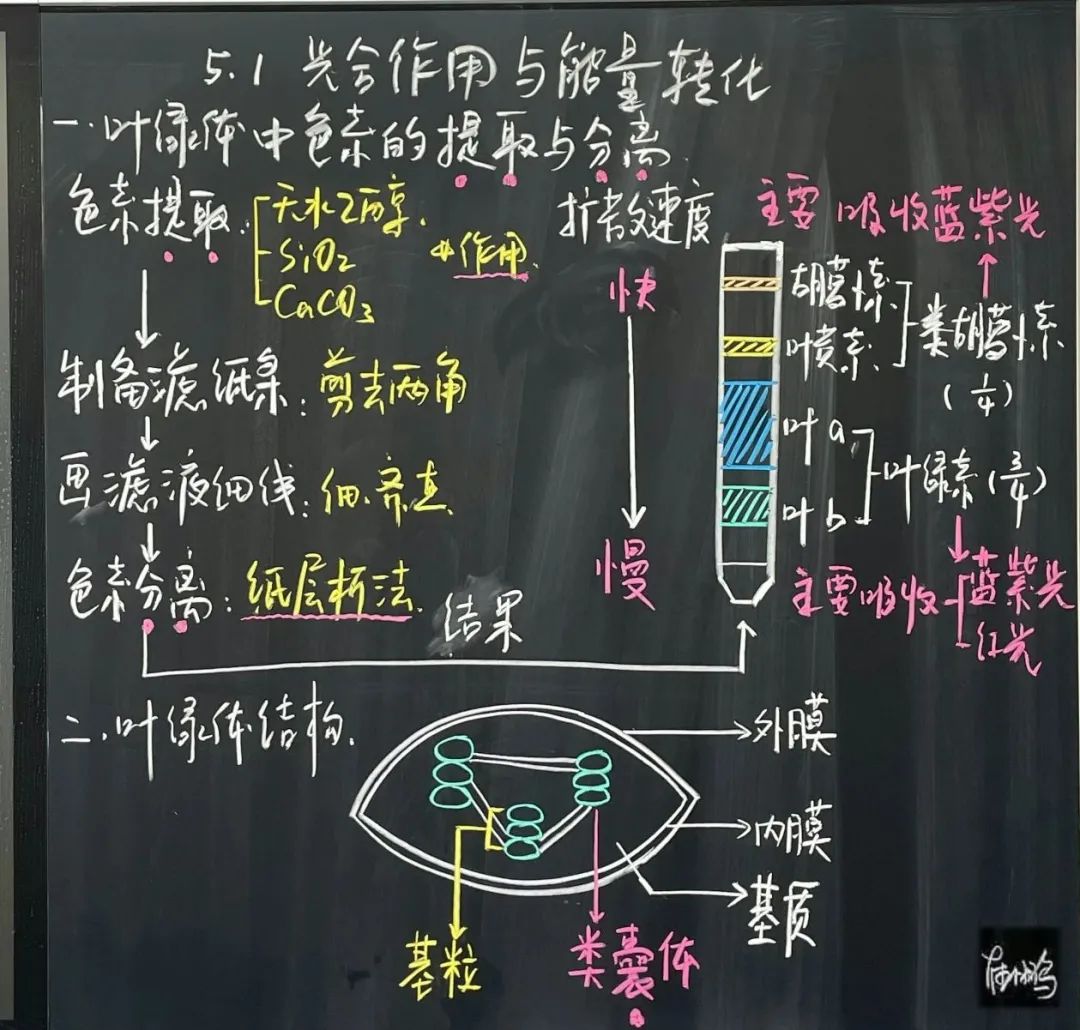 5.1 光合作用与能量转化
一.叶绿体中色素的提取与分离
色素提取
无水乙醇
SiO2
CaCO3
作用
制备滤纸条:剪去两角
画滤液细线:细、齐、直
色素分离:纸层析法
结果
扩散速度
快
慢
主要吸收蓝紫光
胡萝卜素
叶黄素
类胡萝卜素
(1/4)
叶a
叶b
叶绿素(3/4)
主要吸收
蓝紫光
红光
二.叶绿体结构
外膜
内膜
基质
基粒
类囊体